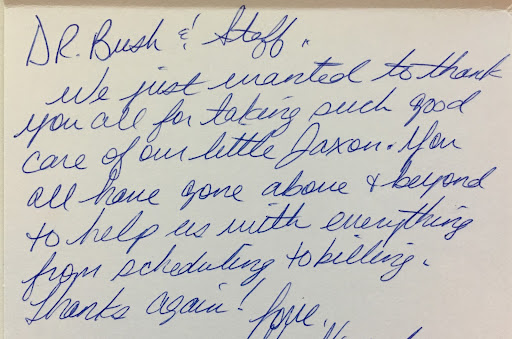 DR. Bush & Staff,
We just wanted to thank
you all for taking such good
care of our little Jaxon. You
all have gone above & beyond
to help us with everything
from scheduling to billing.
Thanks again!
Love,